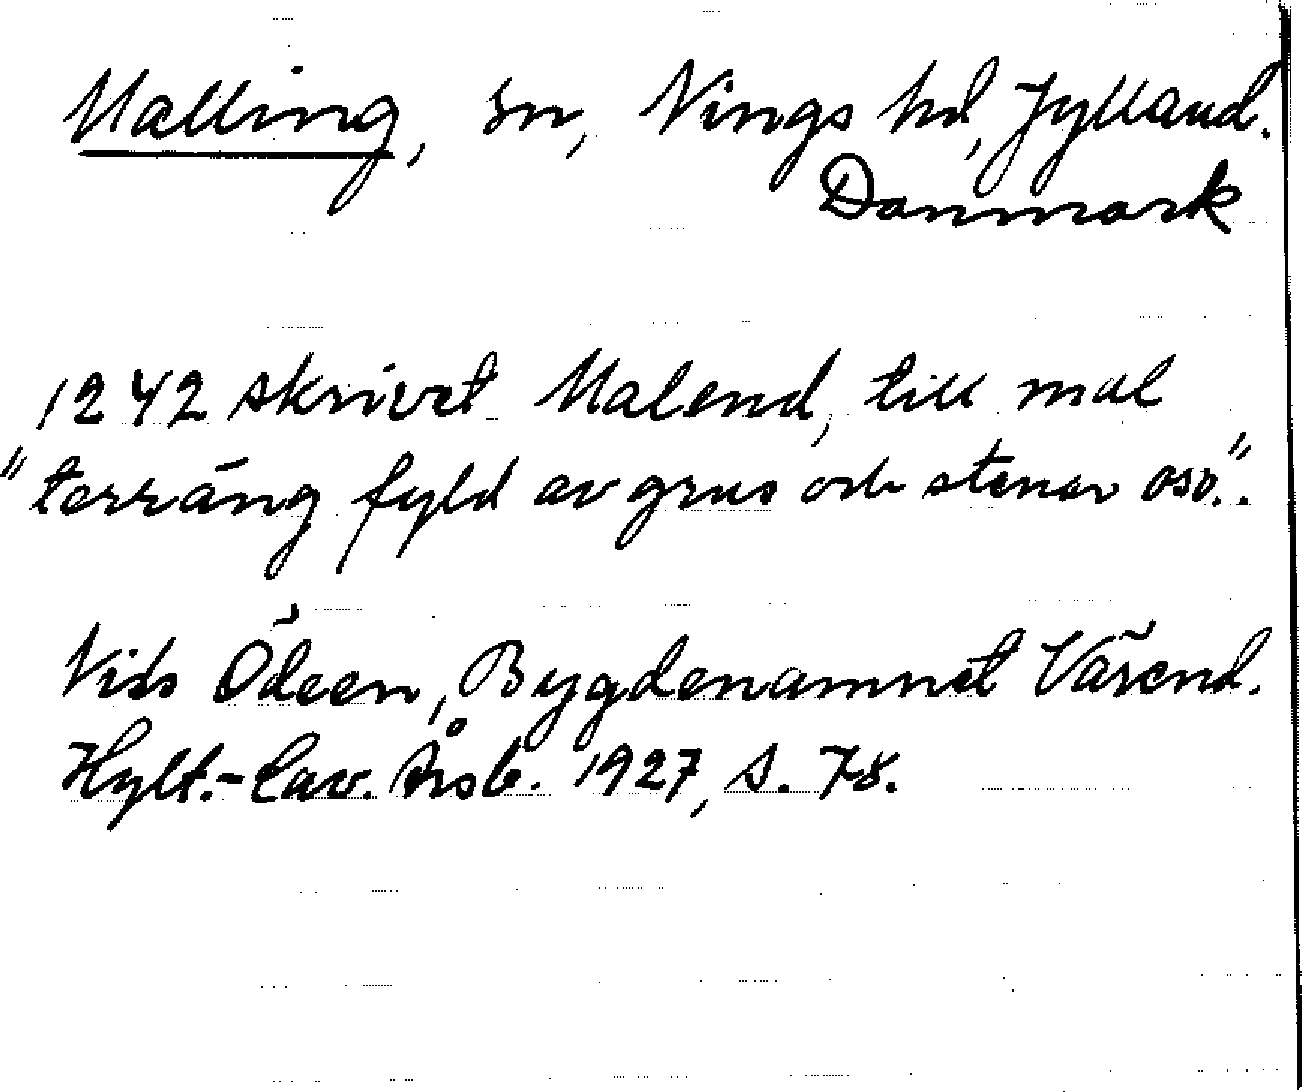 Malling, sn, Nings hd, Jylland.
Danmark
1242 skrivet Malend, till mal
"terräng fyld av grus och stenar oso.".
Nils Ödeen, Bygdenamnet Värend.
Hylt.-Cav. Årsb. 1927, s. 78.